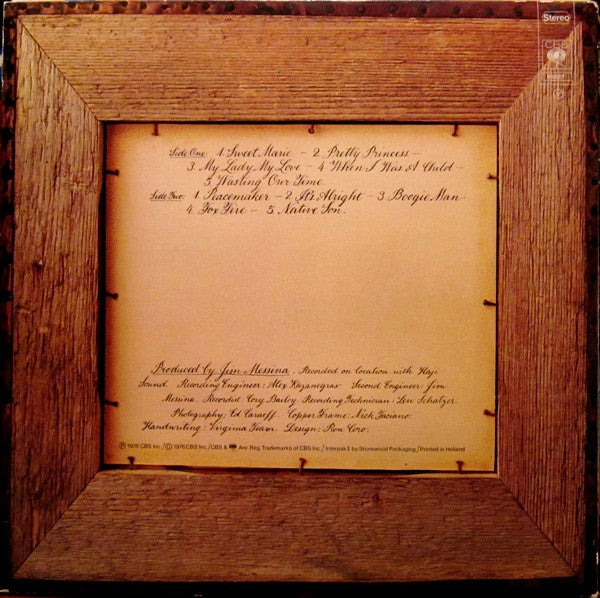 Stereo
CBS
Side One: 1 Sweet Marie – 2. Pretty Princess –
3 My Lady, My Love – 4 When I Was A Child –
5 Wasting Our Time.
Side Two: 1 Peacemaker – 2 It's Alright – 3 Boogie Man –
4. Fox Fire – 5. Native Son.
Produced by Jim Messina. Recorded on Location with Haji
Sound. Recording Engineer: Alex Kazanegras Second Engineer Jim
Messina. Recordist: Cory Bailey Recording Technician: Lew Schatzer.
Photography: Ed Caraeff Copper Frame: Nick Fasciano.
Handwriting: Virginia Team. Design: Ron Coro.
Ⓟ 1976 CBS Inc./ © 1976 CBS Inc./CBS & Are Reg. Trademarks of CBS Inc./ Interpak E by Shorewood Packaging / Printed in Holland